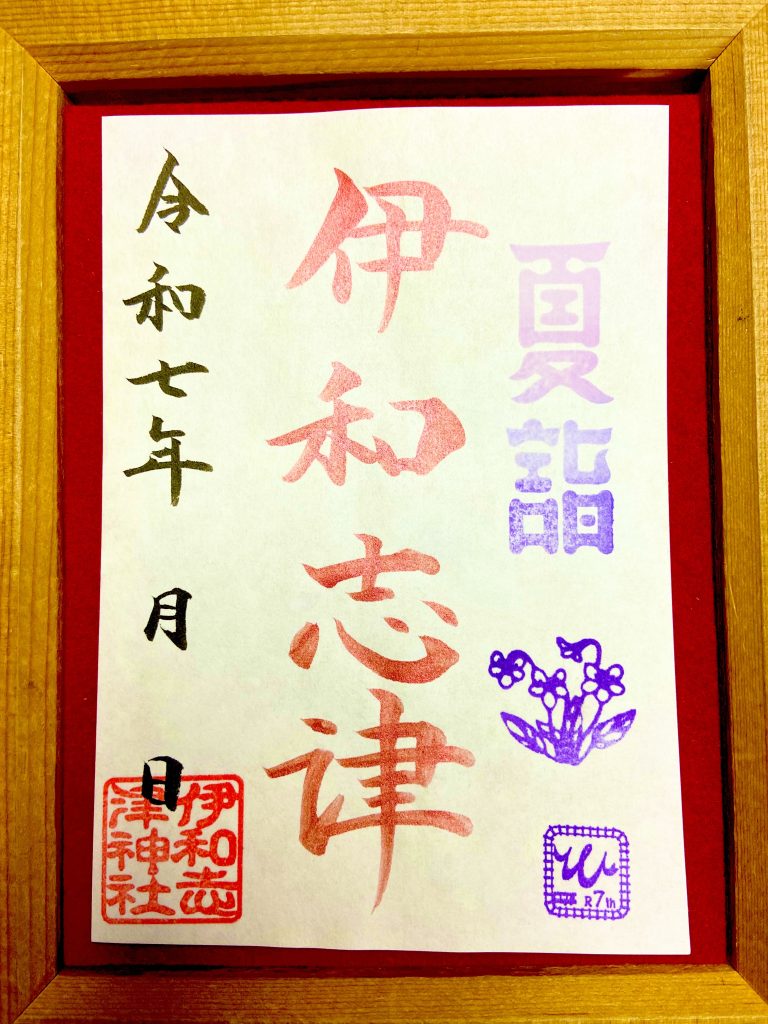 夏詣
伊和志津
令和七年 月 日
伊和志
津神社
R7th